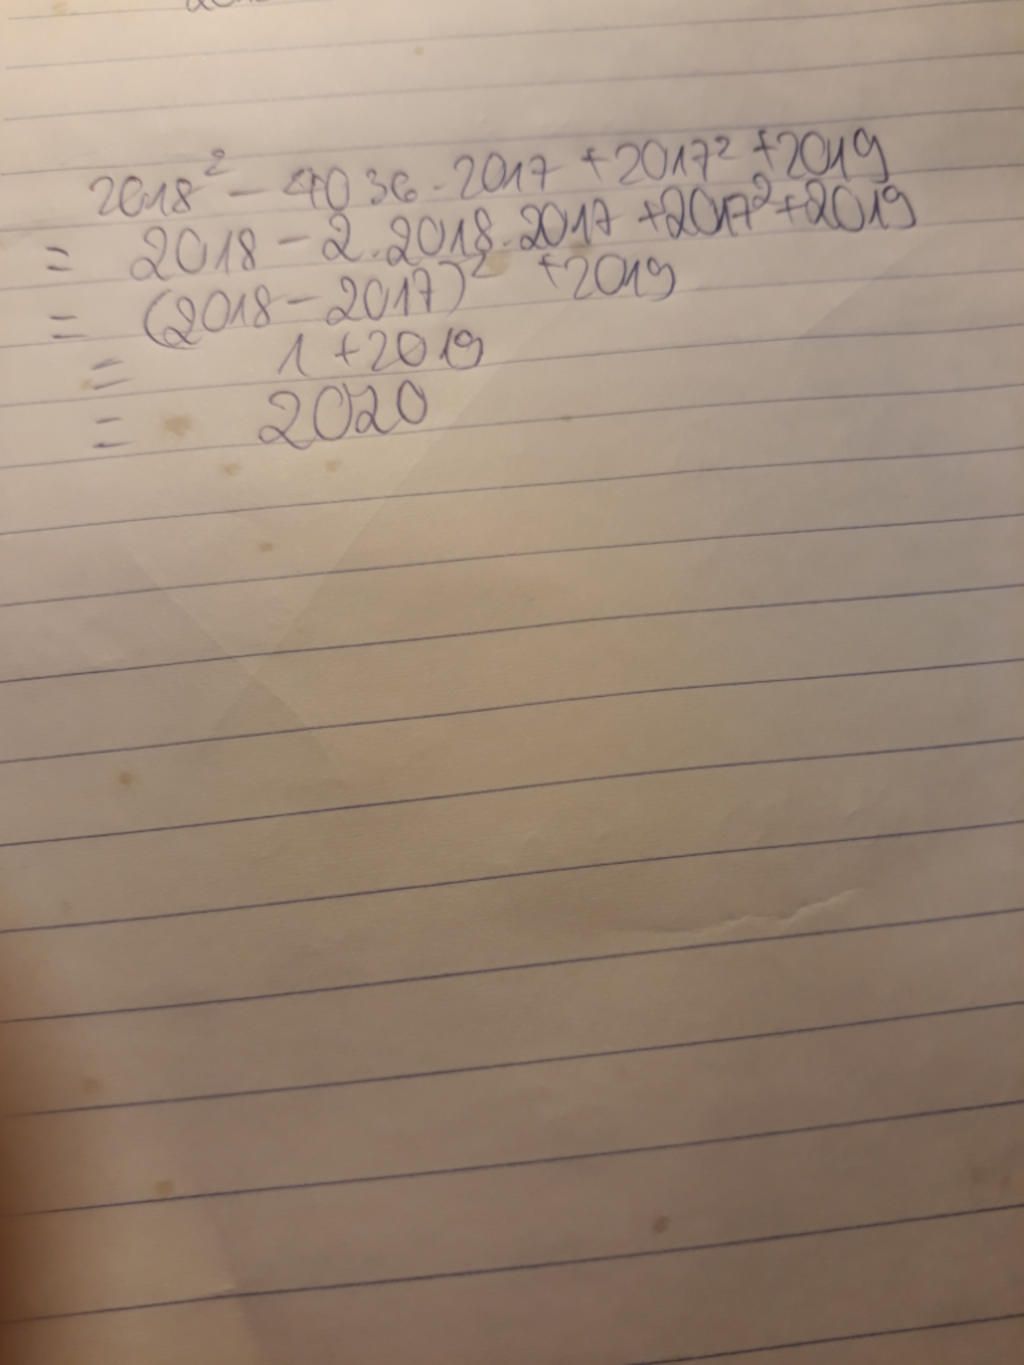 2018² - 4036 . 2017 + 2017² + 2019
= 2018 - 2 . 2018 . 2017 + 2017² + 2019
= (2018 - 2017)² + 2019
= 1 + 2019
= 2020